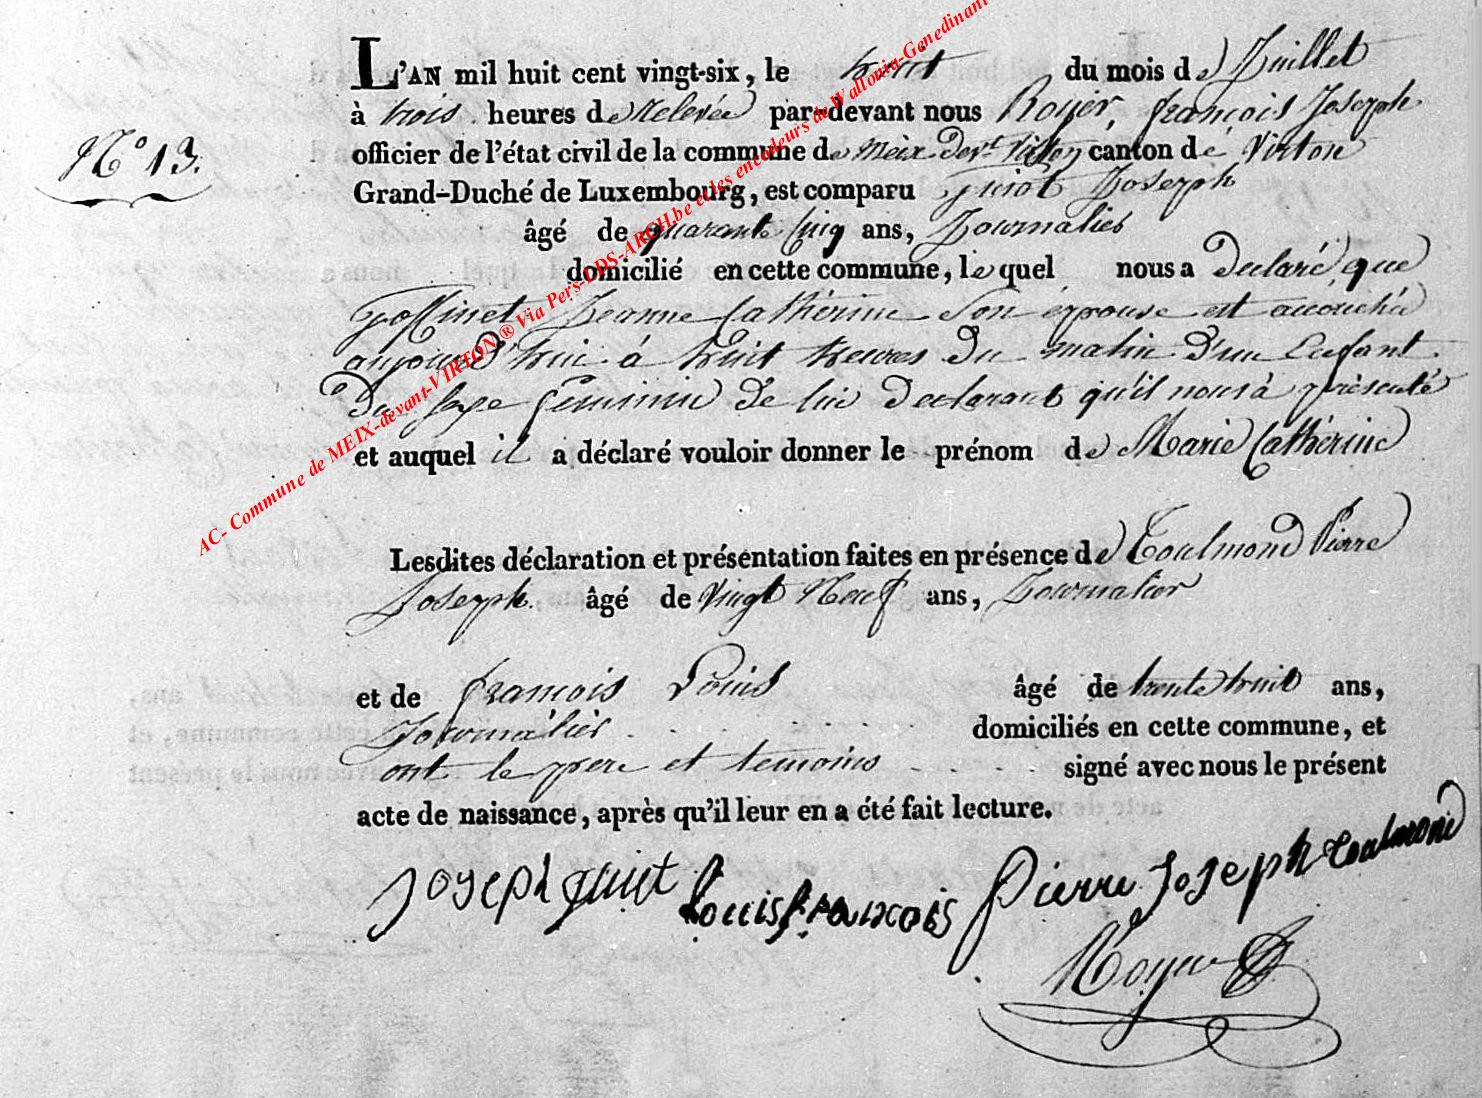 L'AN mil huit cent vingt-six, le huit du mois de Juillet
à trois heures de Relevée par-devant nous Royer, françois Joseph
N° 13.
officier de l'état civil de la commune de Meix devt Virton canton de Virton
Grand-Duché de Luxembourg, est comparu Guiot Joseph
âgé de quarante Cinq ans, Journalier
domicilié en cette commune, lequel nous a declaré que
Goffinet Jeanne Catherine son épouse est accouchée
aujourd'hui à huit heures du matin d'un Enfant
du sexe féminin de lui declarant qu'il nous à présenté
et auquel il a déclaré vouloir donner le prénom de Marie Catherine
Lesdites déclaration et présentation faites en présence de Toulmond Pierre
Joseph. âgé de Vingt Neuf ans, Journalier
et de françois Louis âgé de trente huit ans,
Journalier . . . . . . domiciliés en cette commune, et
ont le pere et temoins . . . . signé avec nous le présent
acte de naissance, après qu'il leur en a été fait lecture.
Joseph guiot Louis francois Pierre Joseph toulmond
Royer
AC- Commune de MEIX-devant-VIRTON® Via Pers-DDS-ARCH.be et les encodeurs de Wallonia-Genedinant